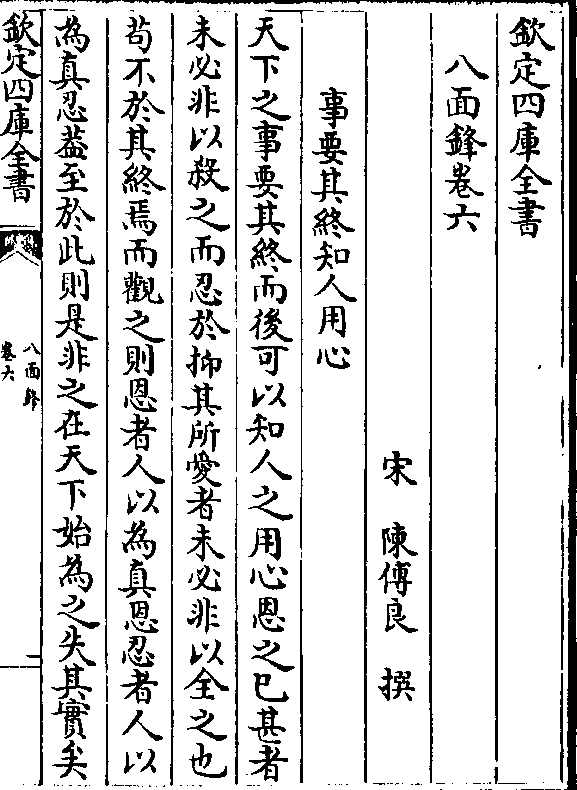 欽定四庫全書
八面鋒卷六
宋 陳傅良 撰
事要其終知人用心
天下之事要其終而後可以知人之用心恩之已甚者
未必非以殺之而忍於抑其所愛者未必非以全之也
苟不於其終焉而觀之則恩者人以為真恩忍者人以
為真忍葢至於此則是非之在天下始為之失其實矣
欽定四庫全書
八面鋒
卷六